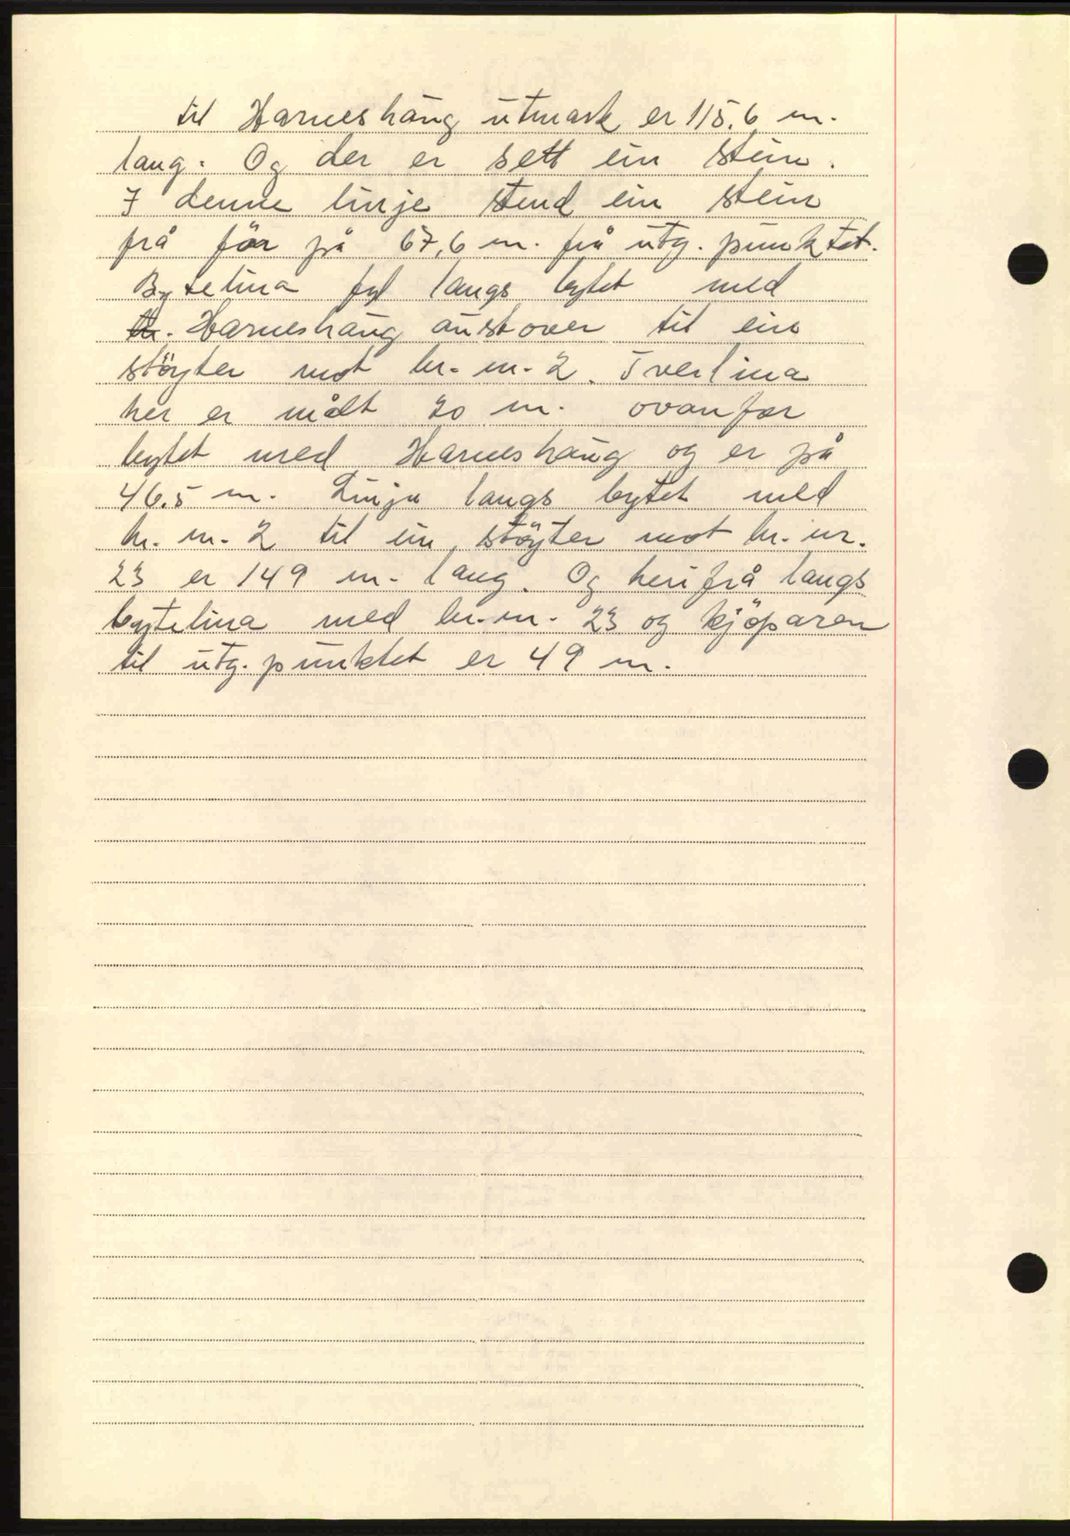 til Harneshaug utmark er 115,6 m.
lang. Og der er sett ein stein.
I denne linje stend ein stein
frå för på 67,6 m. frå utg. punktet.
Bytelina fyl langs bytet med
Harneshaug austover til ein
støyter mot br. nr. 2. Tverlina
her er målt 20 m. ovanfor
bytet med Harneshaug og er på
46.5 m. Linja langs bytet med
br. nr. 2 til ein støyter mot br. nr.
23 er 149 m. lang. Og herifrå langs
bytelina med br. nr. 23 og kjöparen
til utg. punktet er 49 m.